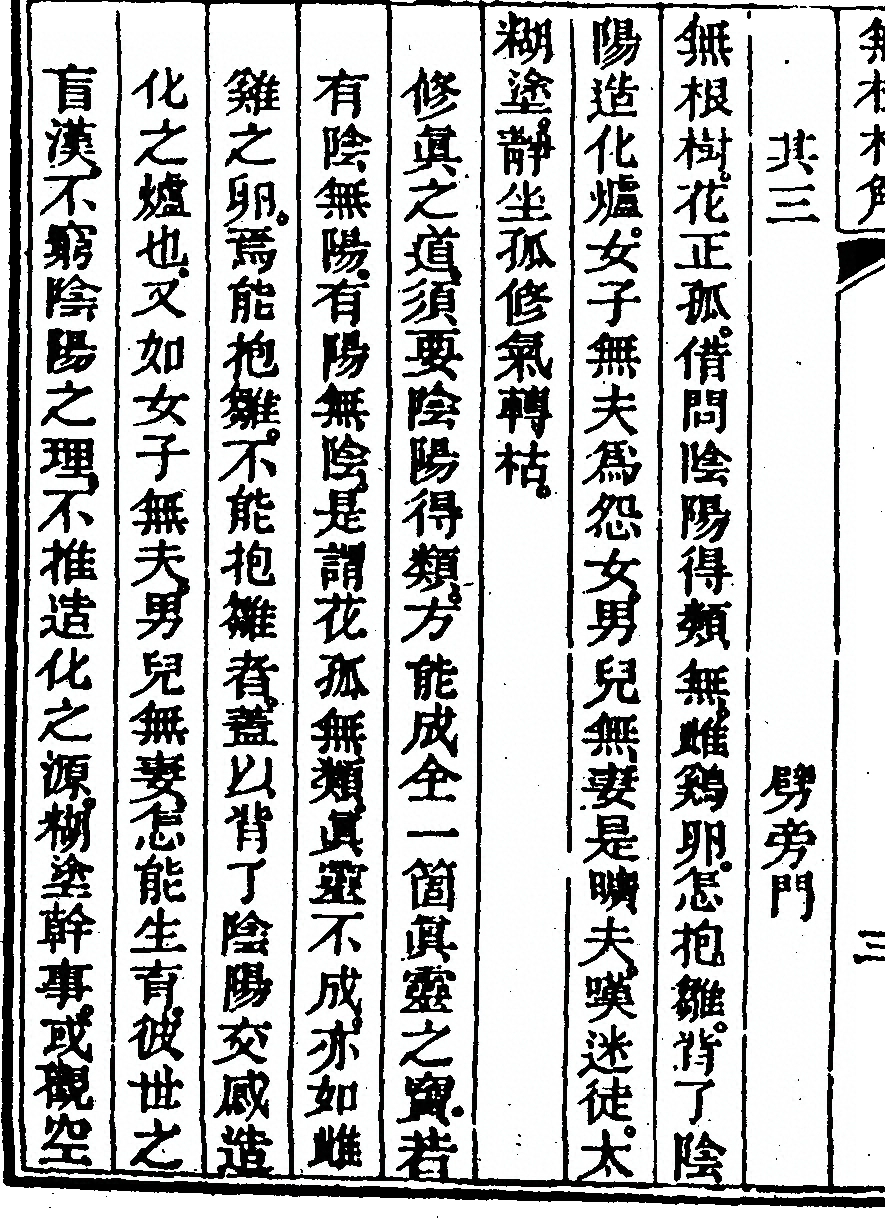 其三 劈旁門 三
無根樹。花正孤。借問陰陽得類無。雌鷄卵。怎抱雛。背了陰
陽造化爐。女子無夫爲怨女。男兒無妻是曠夫。嘆迷徒。太
糊塗。靜坐孤修氣轉枯。
修眞之道、須要陰陽得類。方能成全一箇眞靈之寶。若
有陰無陽。有陽無陰、是謂花孤無類。眞靈不成。亦如雌
雞之卵。焉能抱雛。不能抱雛者。蓋以背了陰陽交感造
化之爐也。又如女子無夫、男兒無妻、怎能生育。彼世之
盲漢、不窮陰陽之理、不推造化之源。糊塗幹事。或觀空